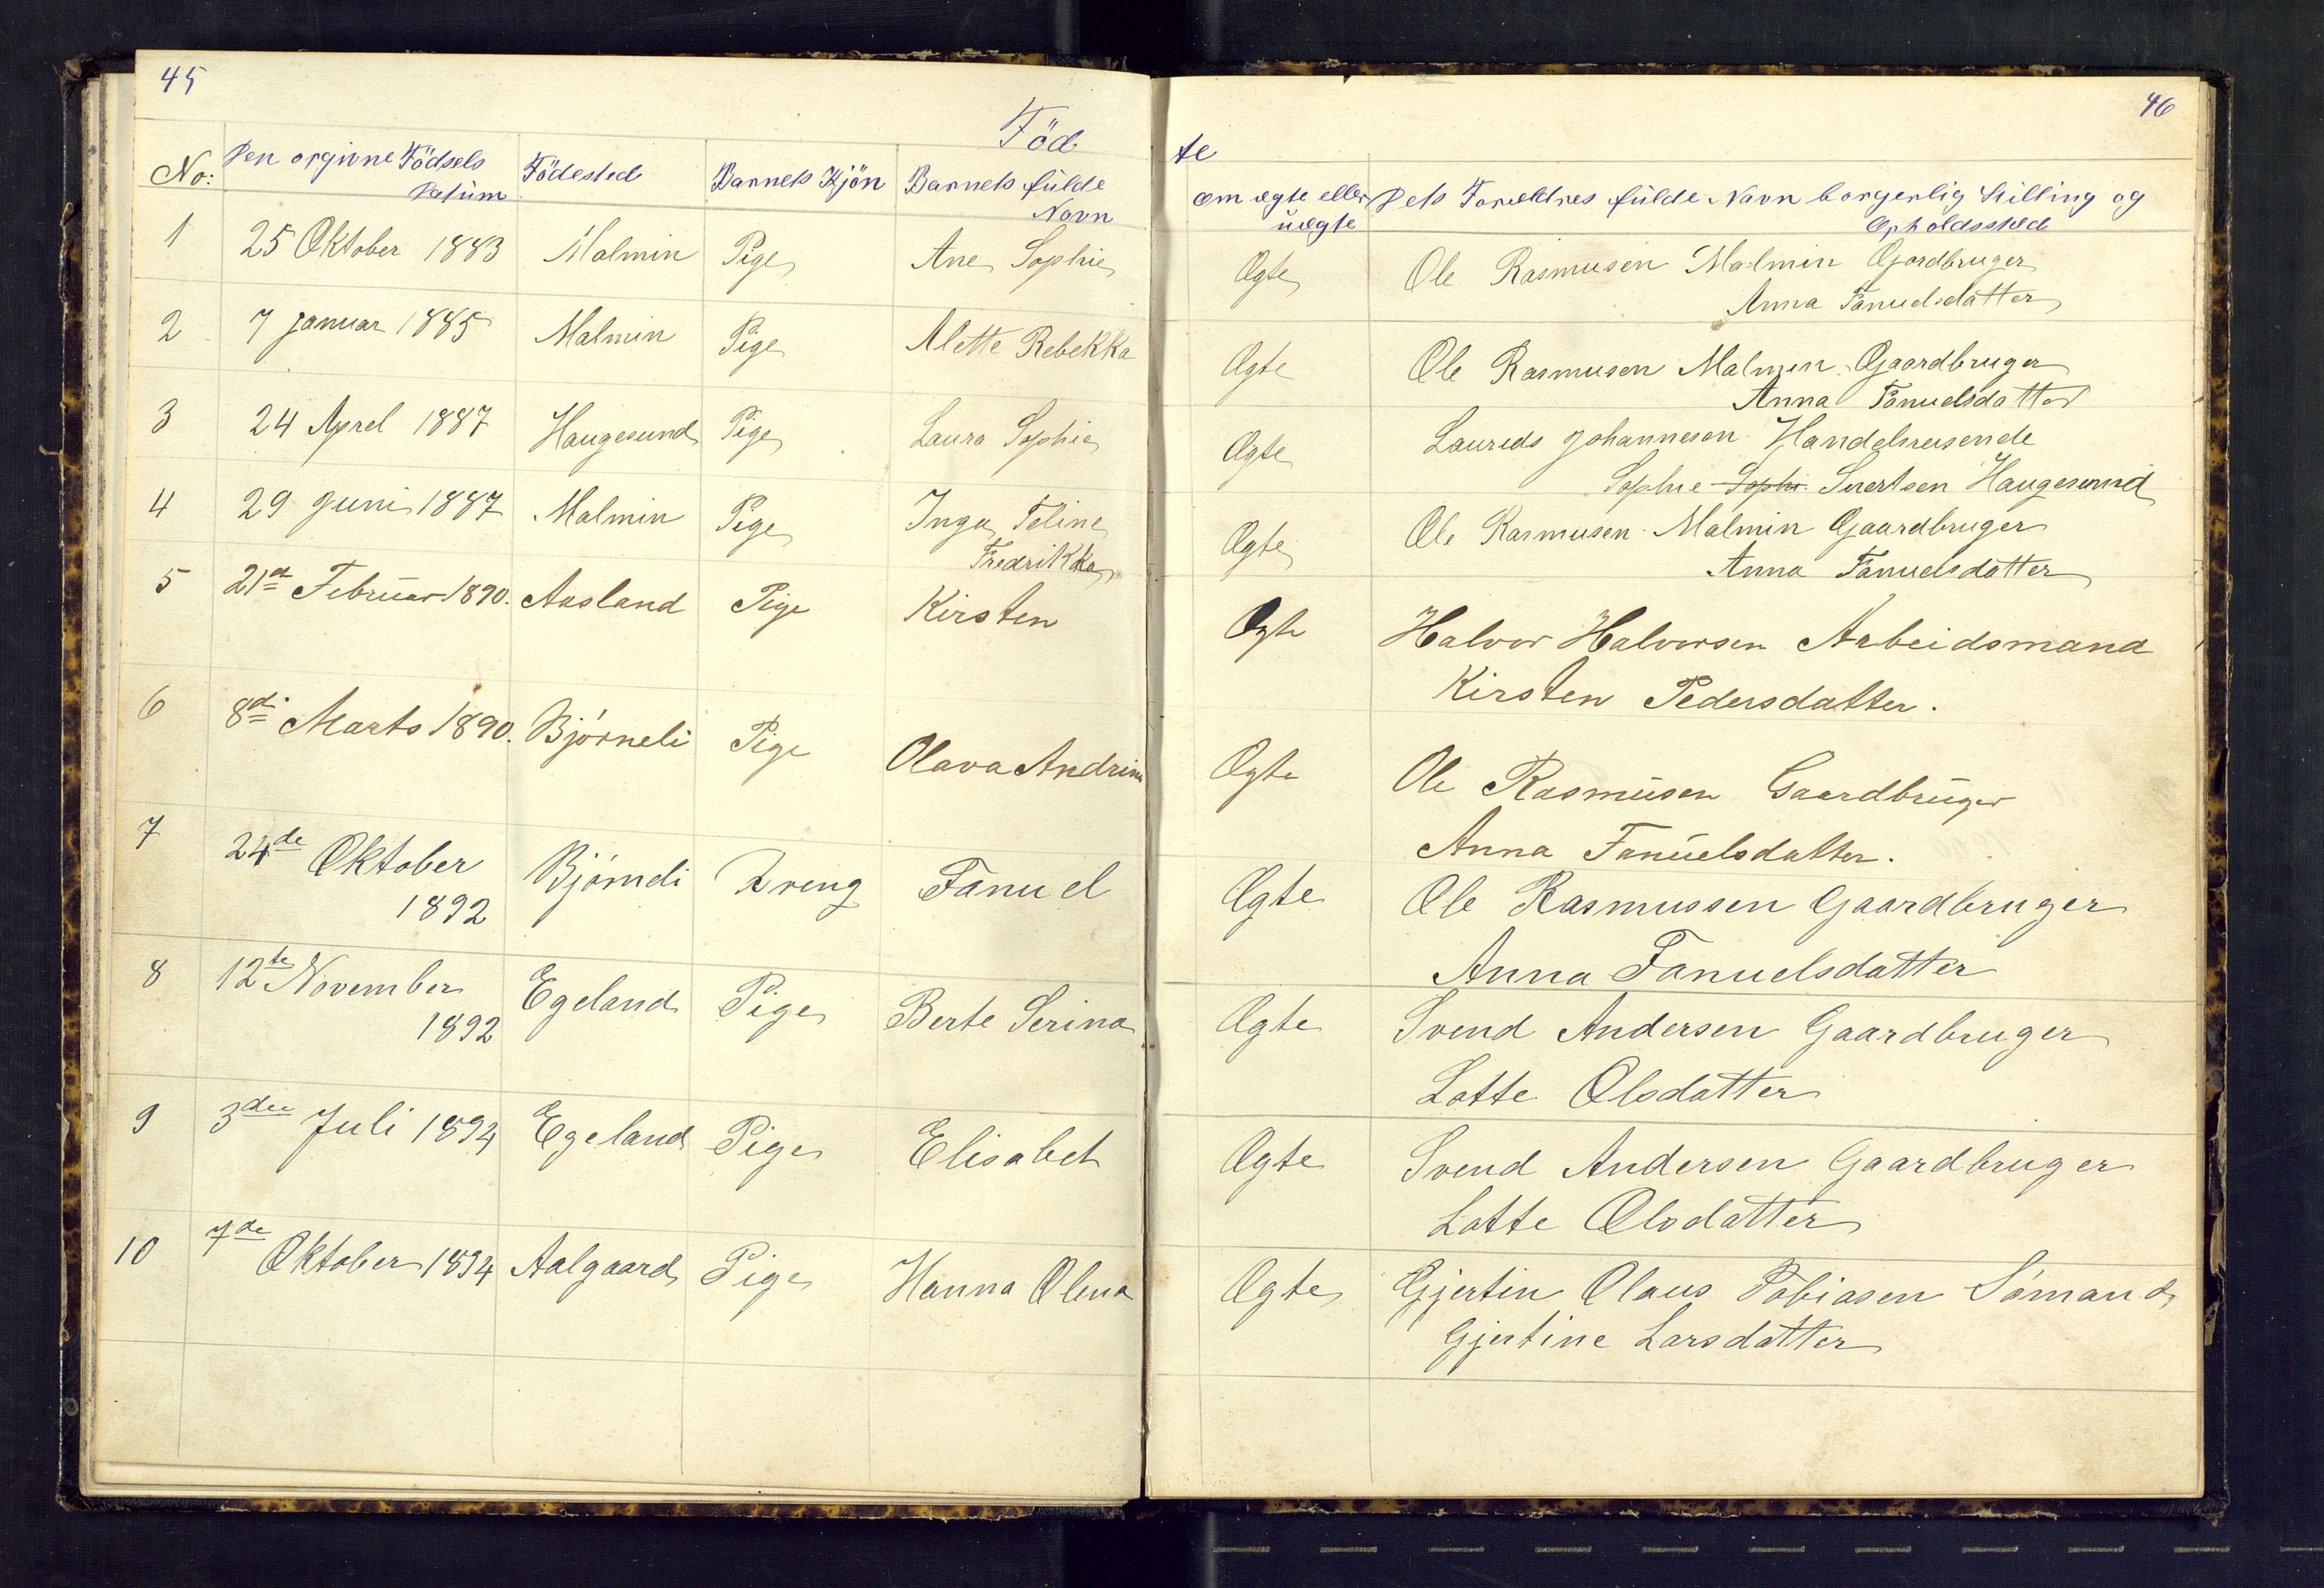 45
Föd
No:
Den opgivne Födsels
Datum
Födested
Barnets Kjön
Barnets fulde
Navn
1 25 Oktober 1883 Malmin Pige Ane Sophie
2 7 Januar 1885 Malmin Pige Alette Rebekka
3 24 Aprel 1887 Haugesund Pige Laura Sophie
4 29 Juni 1887 Malmin Pige Inga Teline
Fredrikka
5 21de Februar 1890. Aasland Pige Kirsten
6 8de Marts 1890. Bjørneli Pige Olava Andrine
7 24de Oktober
1892
Bjørndi Dreng Fanuel
8 12te November
1892
Egeland Pige Berte Serina
9 3die Juli 1894 Egeland Pige Elisabet
10 7de
Oktober 1894 Aalgaard Pige Hanna Olena
46
te
om ægte eller
uægte
Dets Forældres fulde Navn borgerlig Stilling og
Opholdssted
Ægte Ole Rasmusen Malmin Gaardbruger
Anna Fanuelsdatter
Ægte Ole Rasmusen Malmin Gaardbruger
Anna Fanuelsdatter
Ægte Laurids Johannesen Handelsreisende
Sophie Sophi Sivertsen Haugesund
Ægte Ole Rasmusen Malmin Gaardbruger
Anna Fanuelsdatter
Ægte Halvor Halvorsen Arbeidsmand
Kirsten Pedersdatter.
Ægte Ole Rasmusen Gaardbruger
Anna Fanuelsdatter.
Ægte Ole Rasmussen Gaardbruger
Anna Fanuelsdatter
Ægte Svend Andersen Gaardbruger
Lotte Olsdatter
Ægte Svend Andersen Gaardbruger
Lotte Olsdatter
Ægte Gjertin Olaus Tobiasen Sømand
Gjertine Larsdatter